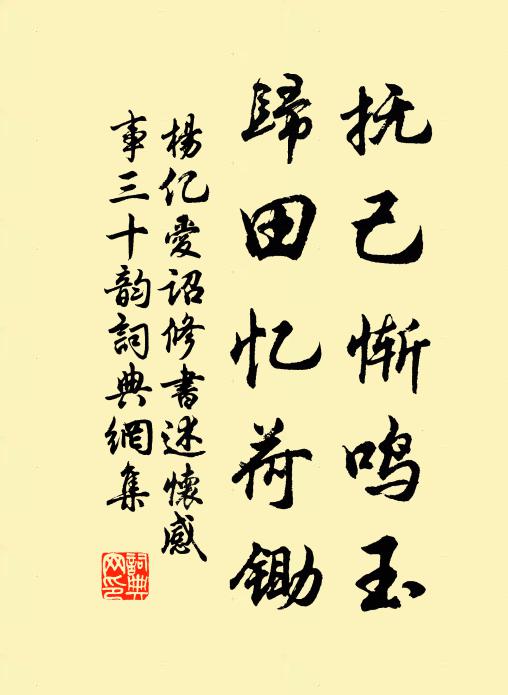 抚己惭鸣玉
歸田忆荷锄
楊亿爱诏修書述懷感
事三十韵詞典網集
詞典
网印